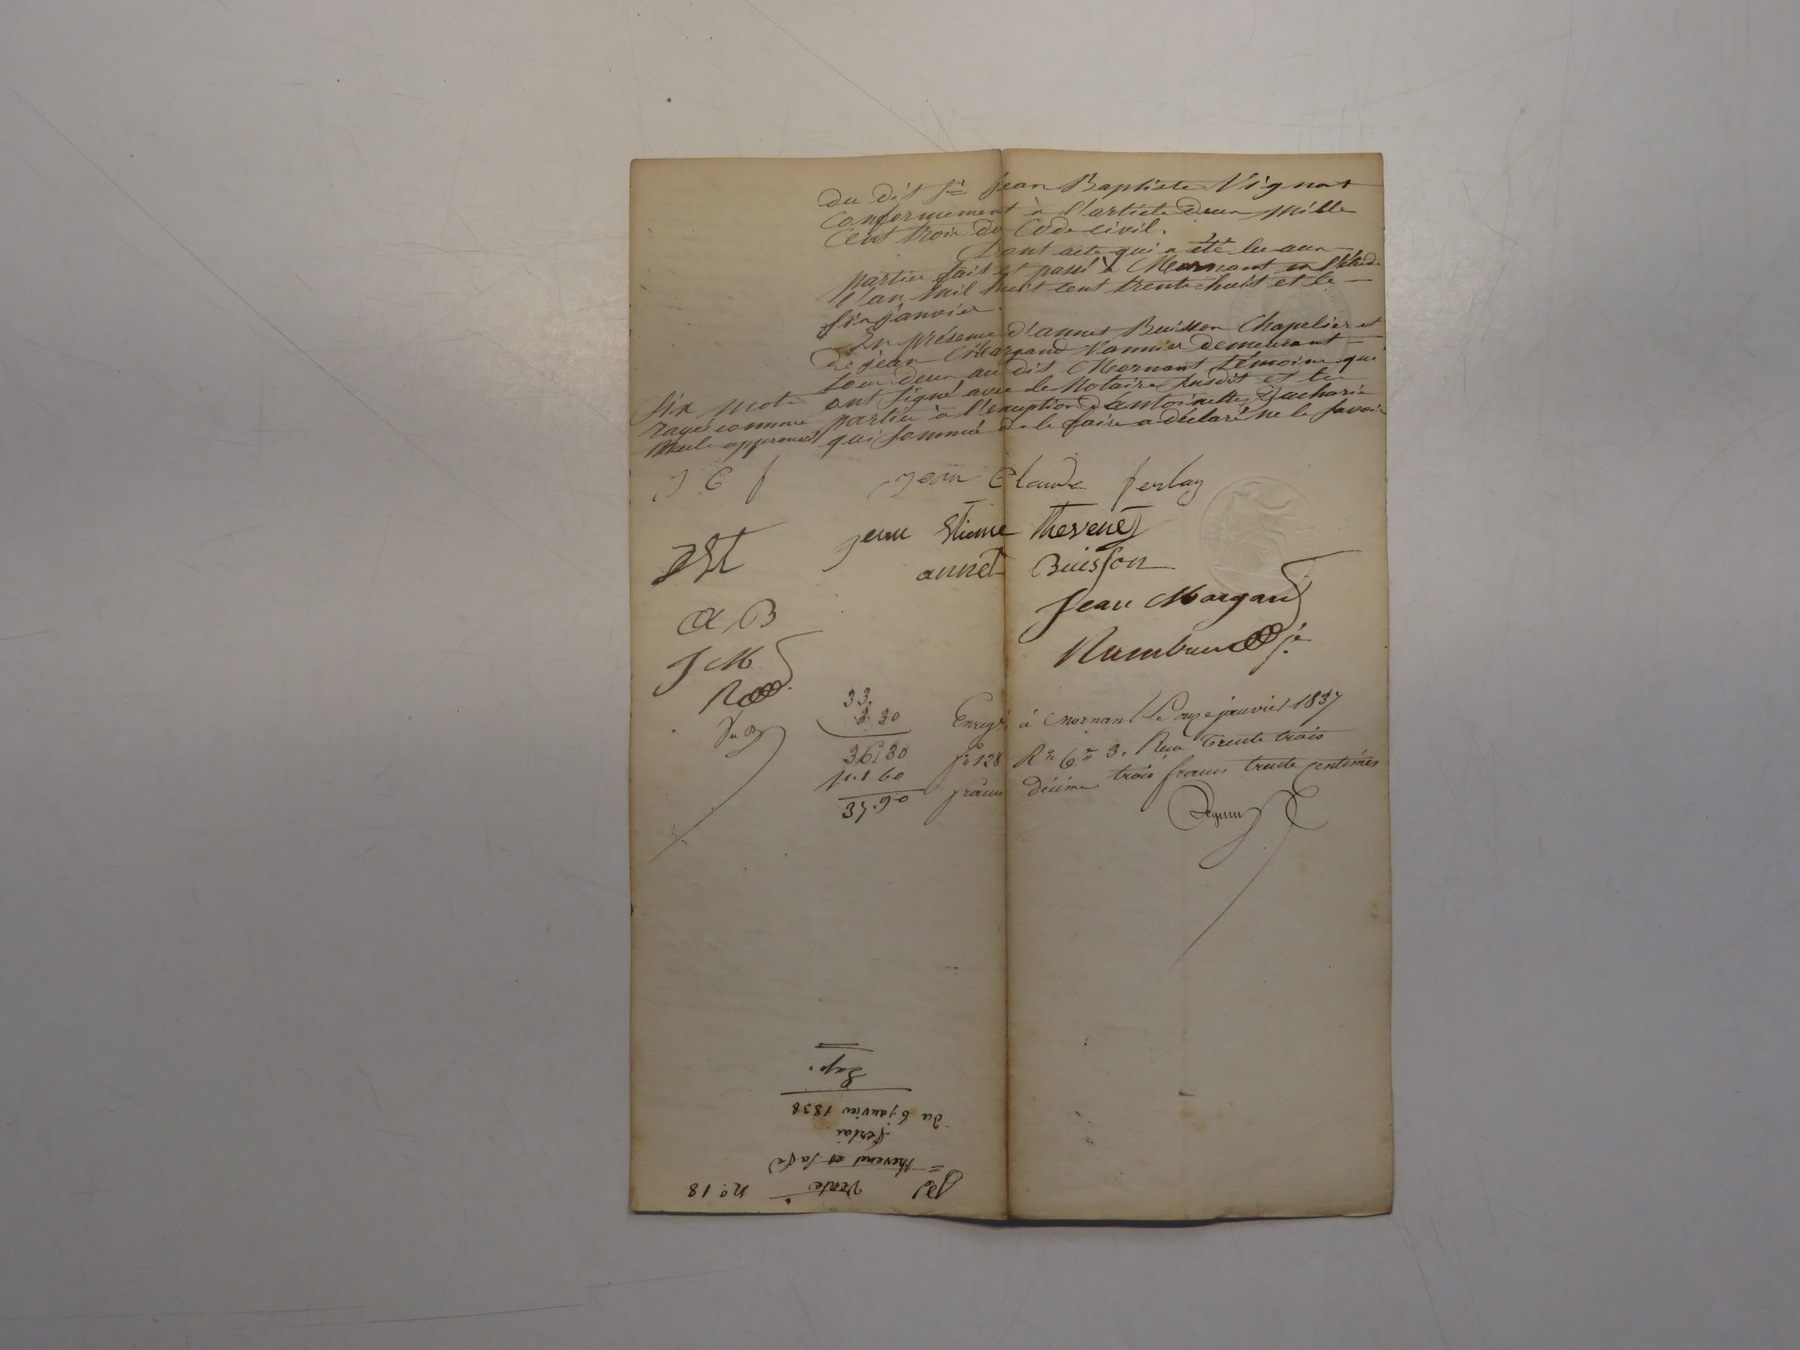 du dit Sr Jean Baptiste Vignat
conformement à l'article deux mille
cent trois du Code civil.
Dont acte qui a été lu aux
parties fait et passé à Mornant en l'étude
l'an mil huit cent trente huit et le
six janvier.
En présence d'annet Buisson Chapelier et
de jean Margand Vannier demeurant
tous deux au dit Mornant témoins qui
ont signé avec le Notaire susdit et les
parties à l'exception d'antoinette Zacharie
qui sommée de le faire a déclaré ne le savoir
Six mots
rayés comme
nuls approuvés
J C f
jean Claude ferlay
JET
jean Etienne Thevenet
annet Buisson
A B
Jean Margand
J M
Rambaud
R
33.
3.30
36.30
1.60
37.90
Enregé à Mornant Le onze janvier 1837
fo 128 Ro Ce 3. Reçu Trente trois
francs décime trois francs trente centimes
no. 18
Vente
thevenet et sa fe
à
ferlai
du 6 janvier 1838
Exp.